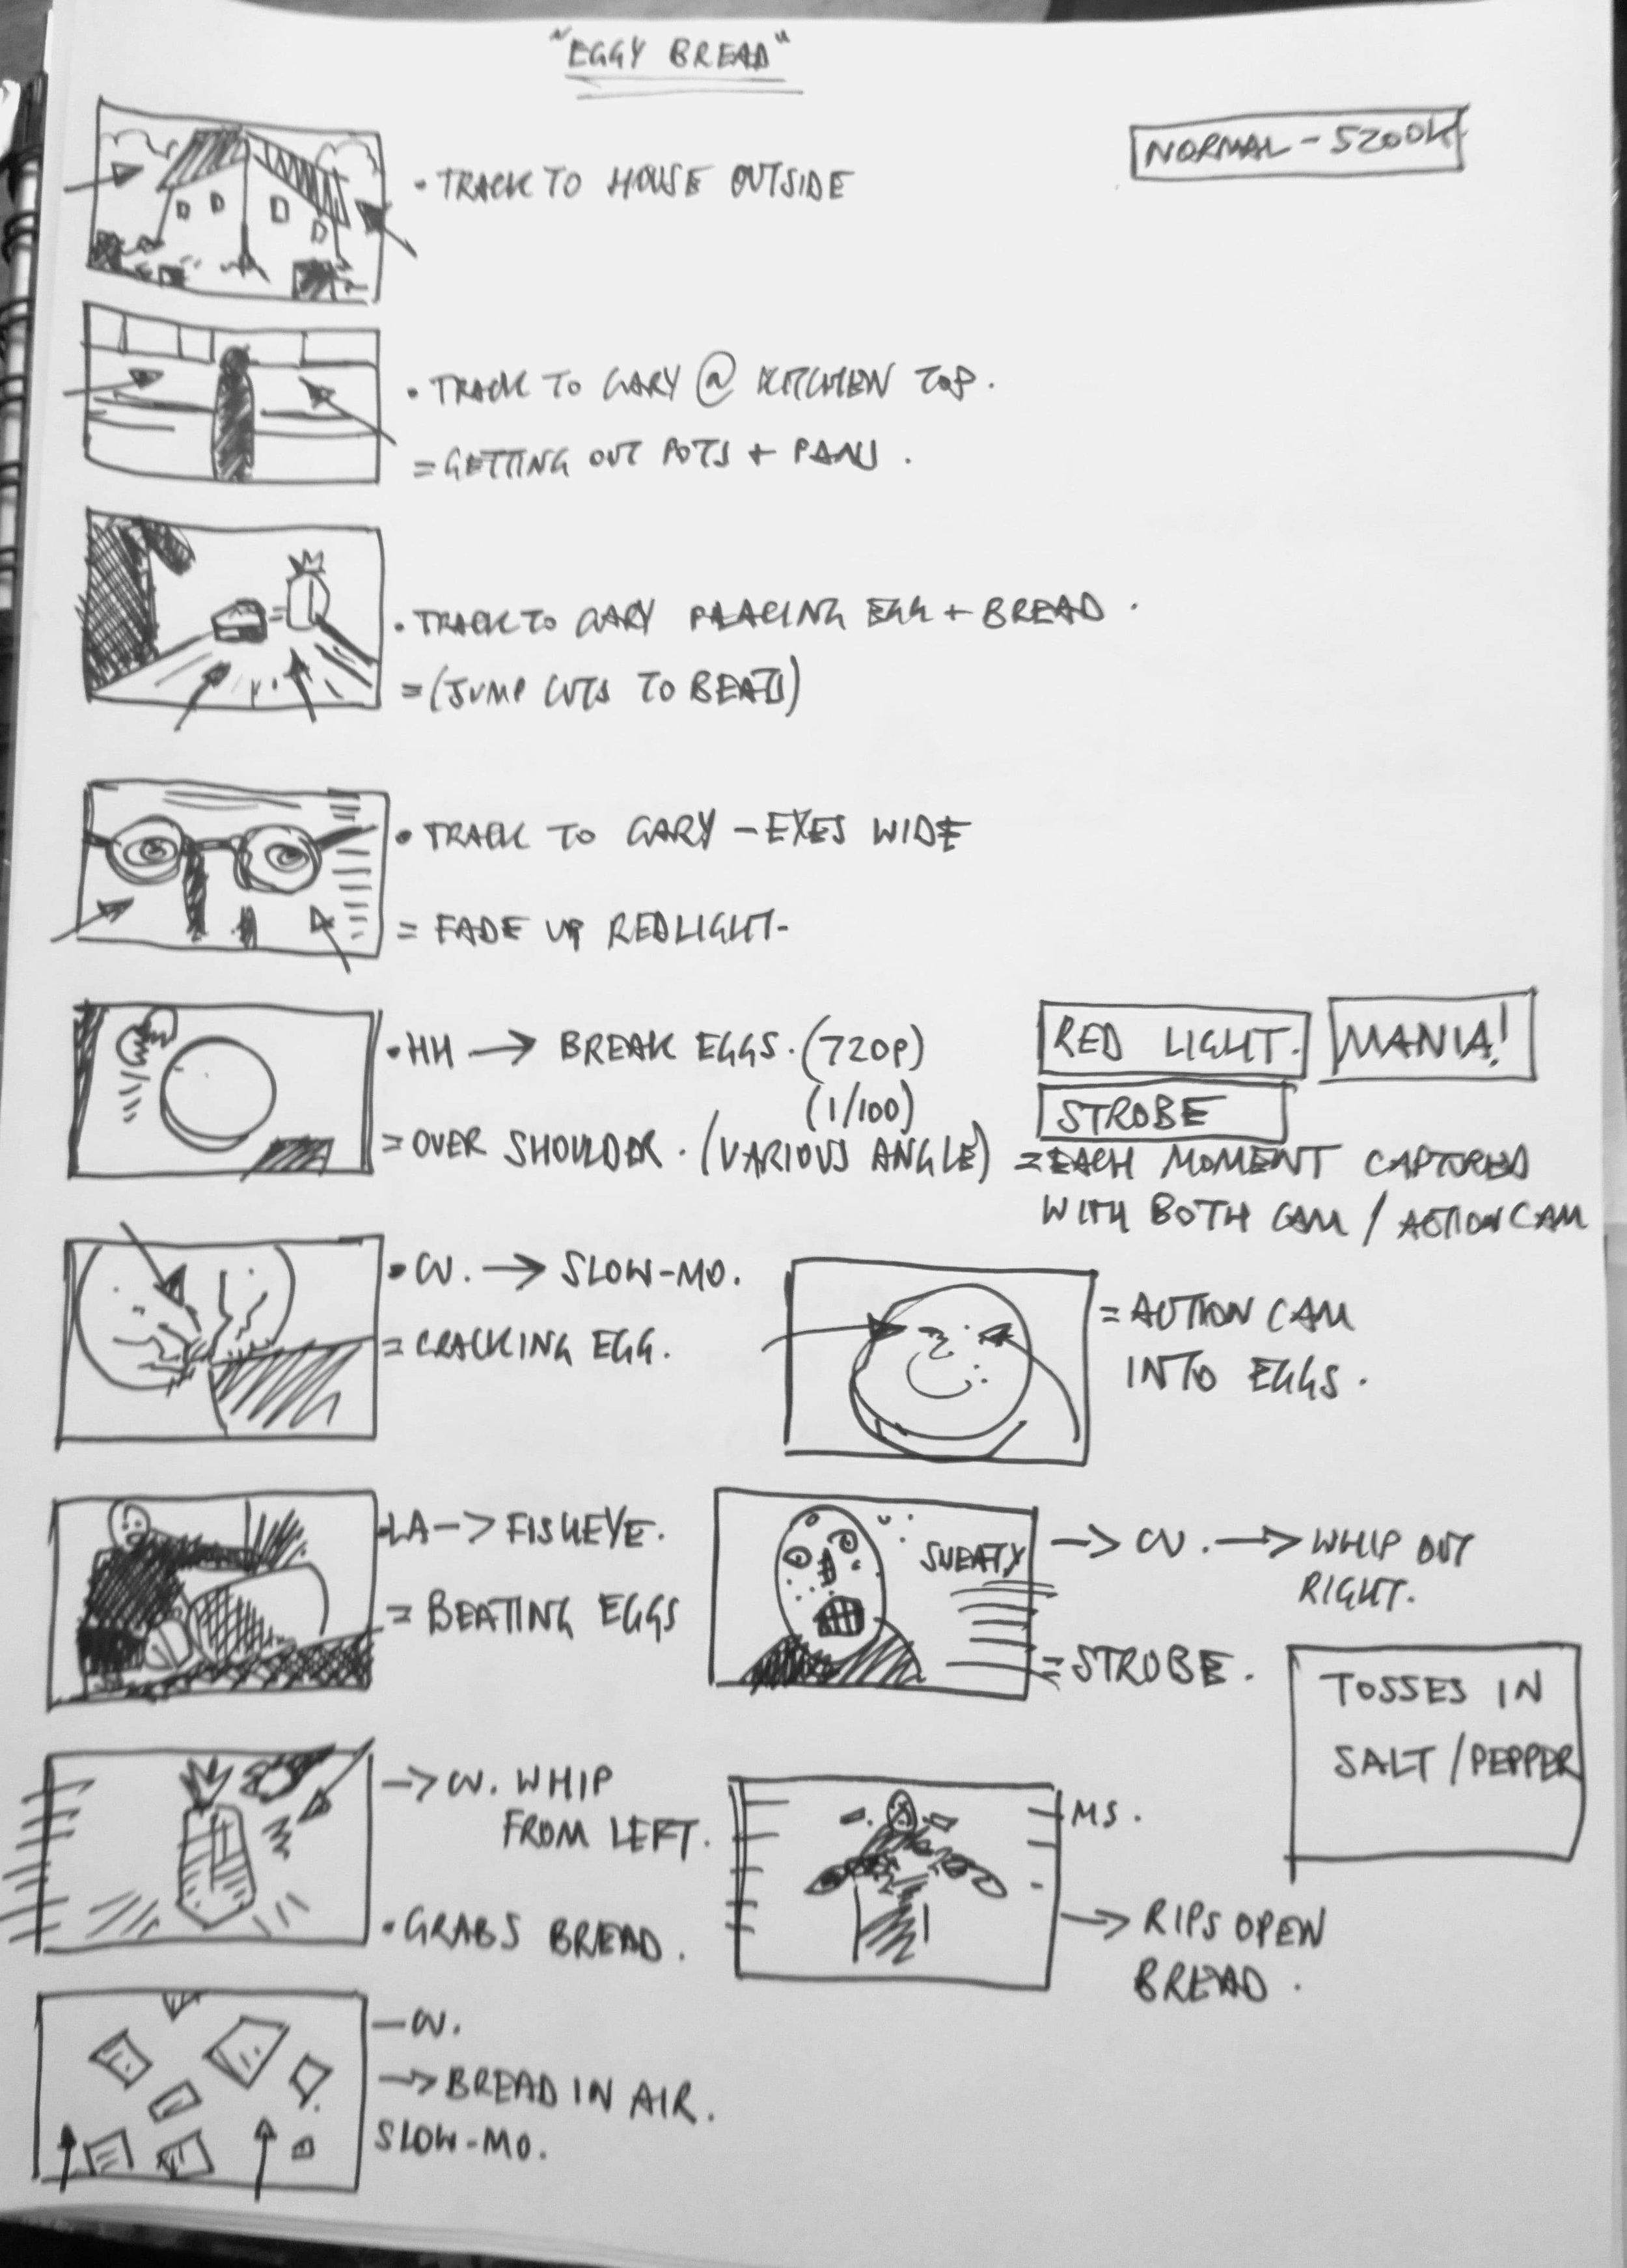 "EGGY BREAD"
NORMAL - 5200K
• TRACK TO HOUSE OUTSIDE
• TRACK TO GARY @ KITCHEN TOP.
= GETTING OUT POTS + PANS.
• TRACK TO GARY PLACING EGG + BREAD.
= (JUMP CUTS TO BEATS)
• TRACK TO GARY - EYES WIDE
= FADE UP RED LIGHT-
• HH → BREAK EGGS. (720p)
(1/100)
= OVER SHOULDER. (VARIOUS ANGLE)
RED LIGHT. MANIA!
STROBE
= EACH MOMENT CAPTURED
WITH BOTH CAM / ACTION CAM
• CU. → SLOW-MO.
= CRACKING EGG.
= ACTION CAM
INTO EGGS.
• LA -> FISHEYE.
= BEATING EGGS
SWEATY
-> CU. -> WHIP OUT
RIGHT.
= STROBE.
TOSSES IN
SALT / PEPPER
-> CU. WHIP
FROM LEFT.
• GRABS BREAD.
MS.
-> RIPS OPEN
BREAD.
- CU.
-> BREAD IN AIR.
SLOW-MO.